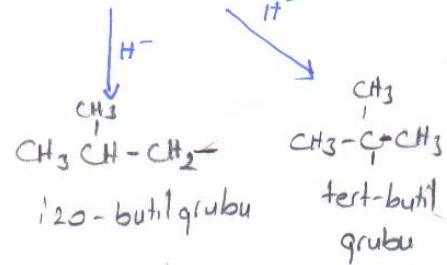 H⁻ H⁻
CH₃
CH₃ CH - CH₂ -
izo-butil grubu
CH₃
CH₃ - C - CH₃
tert-butil
grubu